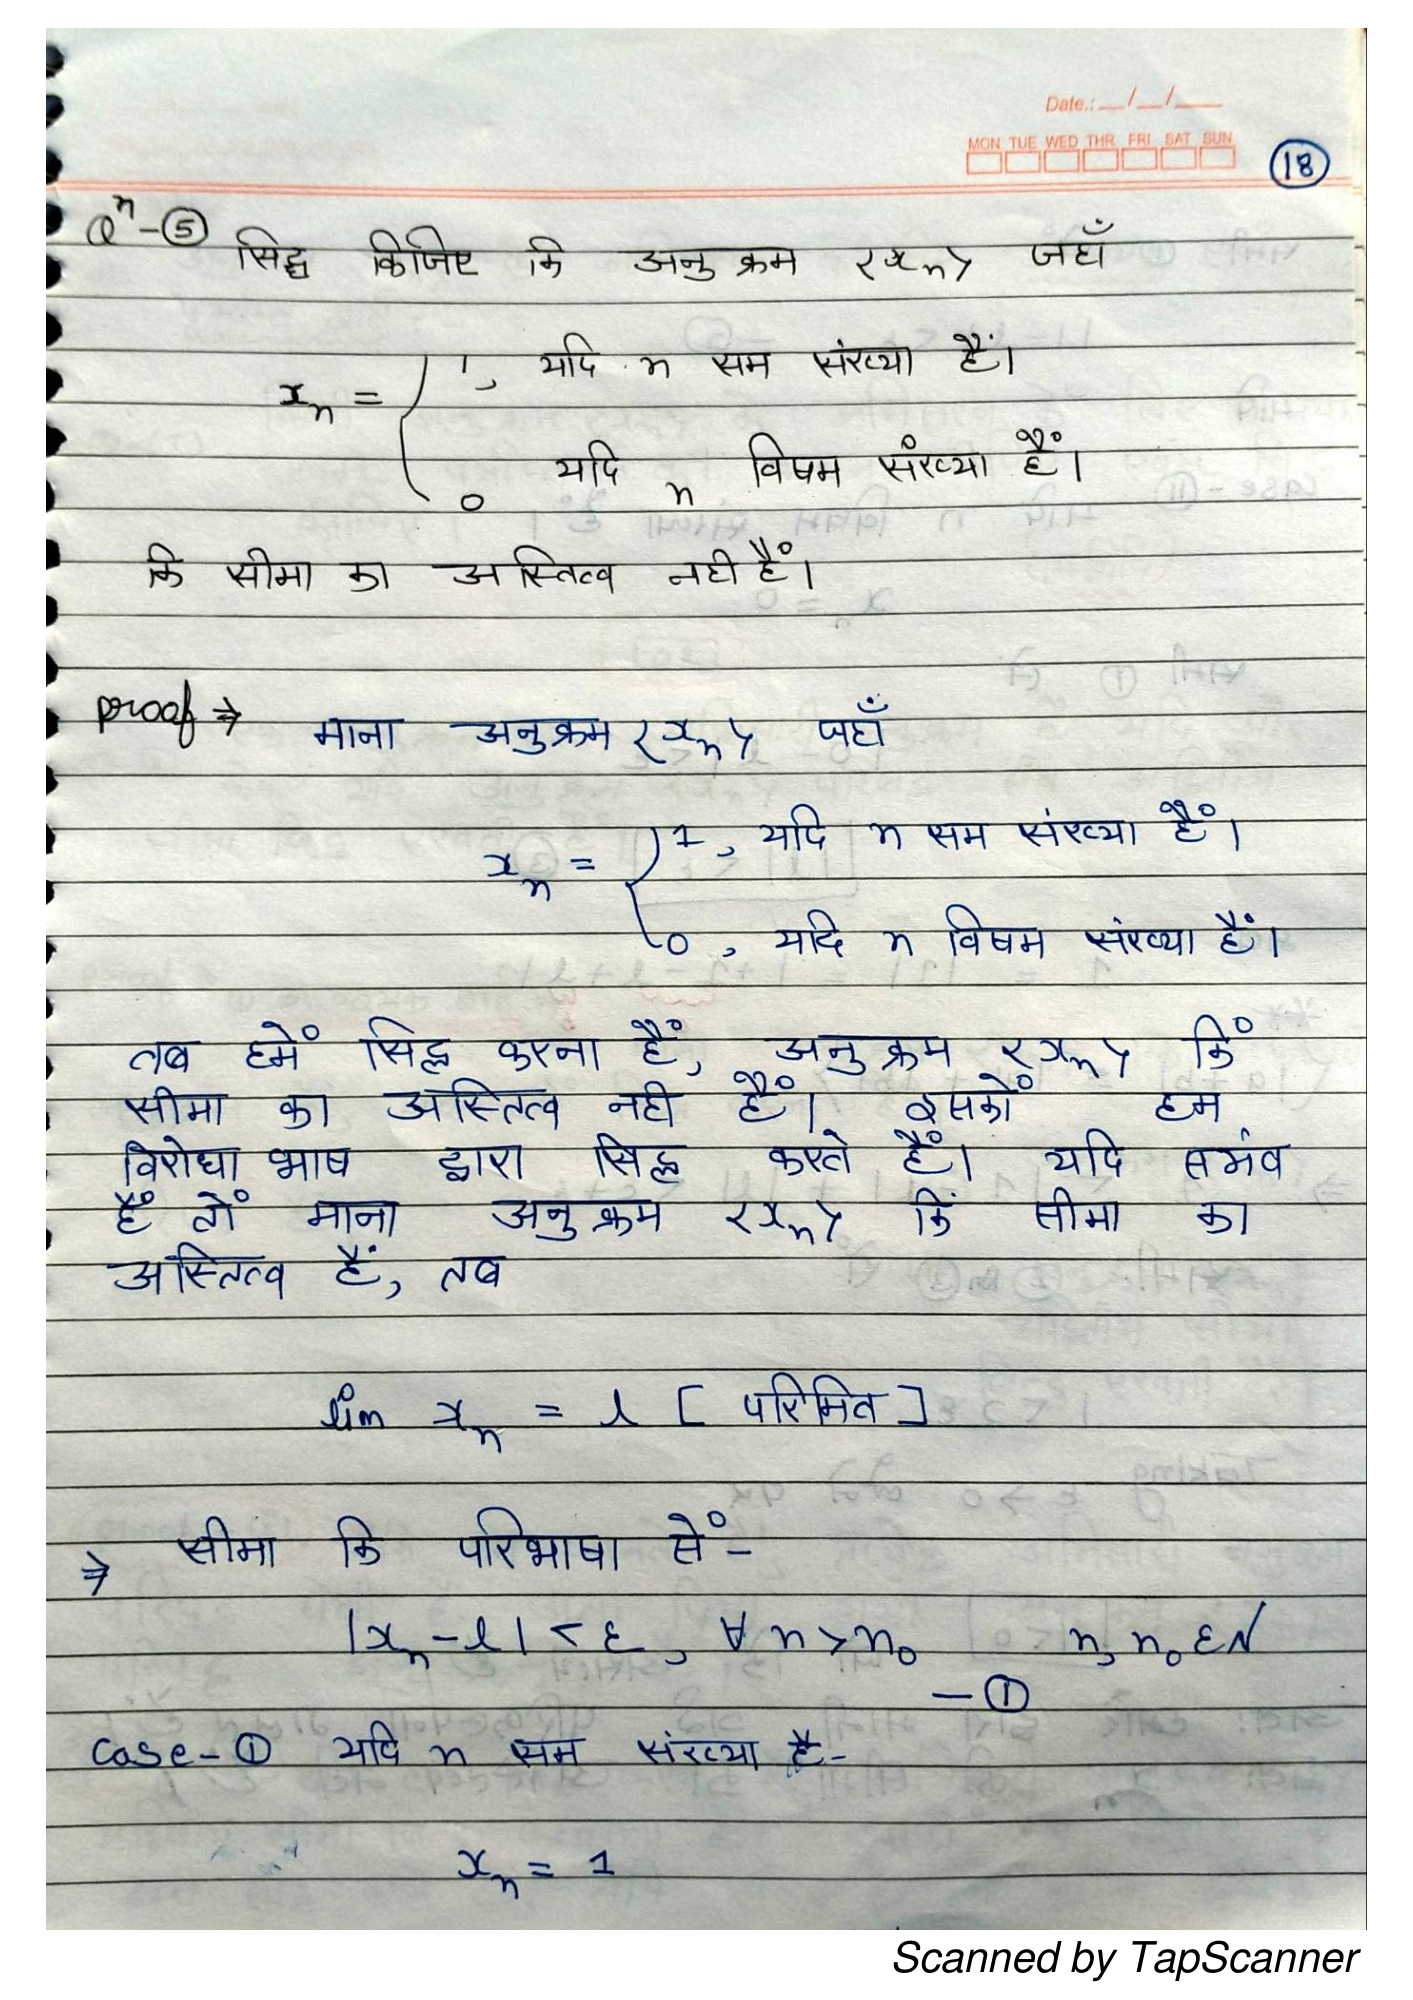 Date.: __/__/___
MON TUE WED THR FRI SAT SUN
18
Qⁿ-⑤ सिद्ध किजिए कि अनुक्रम <xₙ> जहाँ
xₙ = { 1, यदि n सम संख्या हैं।
0 यदि n विषम संख्या हैं।
कि सीमा का अस्तित्व नही हैं।
proof ⇒ माना अनुक्रम <xₙ> जहाँ
xₙ = { 1, यदि n सम संख्या हैं।
0, यदि n विषम संख्या हैं।
तब हमें सिद्ध करना हैं, अनुक्रम <xₙ> किं
सीमा का अस्तित्व नही हैं। इसकों हम
विरोधाभाष द्वारा सिद्ध करते हैं। यदि सभंव
हैं तों माना अनुक्रम <xₙ> किं सीमा का
अस्तित्व हैं, तब
lim xₙ = l [ परिमित ]
⇒ सीमा कि परिभाषा सें-
|xₙ - l| < ε, ∀ n > n₀ n, n₀ ε N
— ①
Case-① यदि n सम संख्या है-
xₙ = 1
Scanned by TapScanner